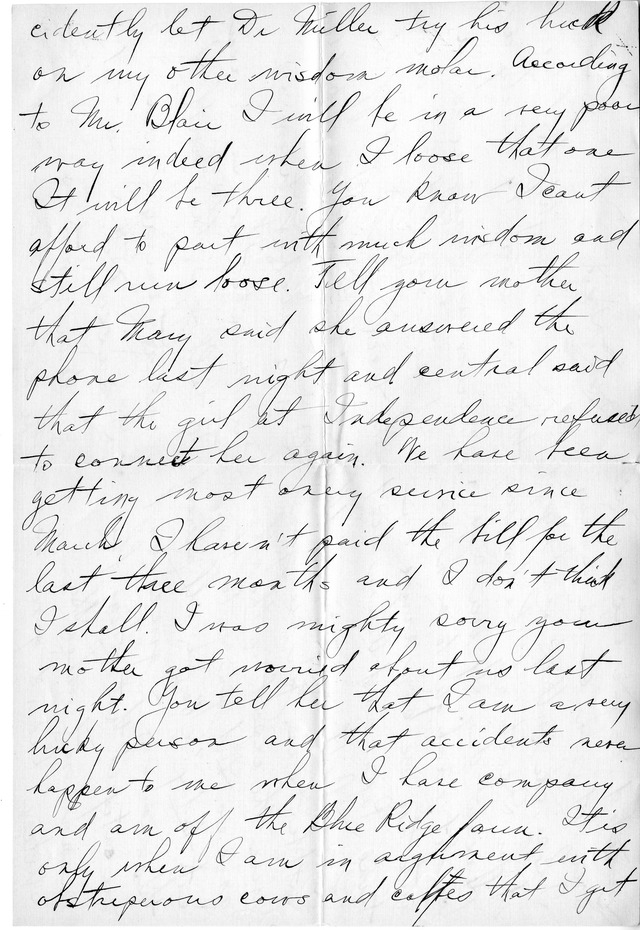 cidently let Dr Miller try his luck
on my other wisdom molar. According
to Mr. Blair I will be in a very poor
way indeed when I loose that one
It will be three. You know I cant
afford to part with much wisdom and
still run loose. Tell your mother
that Mary said she answered the
phone last night and central said
that the girl at Independence refused
to connect her again. We have been
getting most service since
March. I haven't paid the bill for the
last three months and I don't think
I shall. I was mighty sorry your
mother got worried about us last
night. You tell her that I am a very
lucky person and that accidents never
happen to me when I have company
and am off the Blue Ridge farm. It is
only when I am in argument with
obstreperous cows and calfes that I get